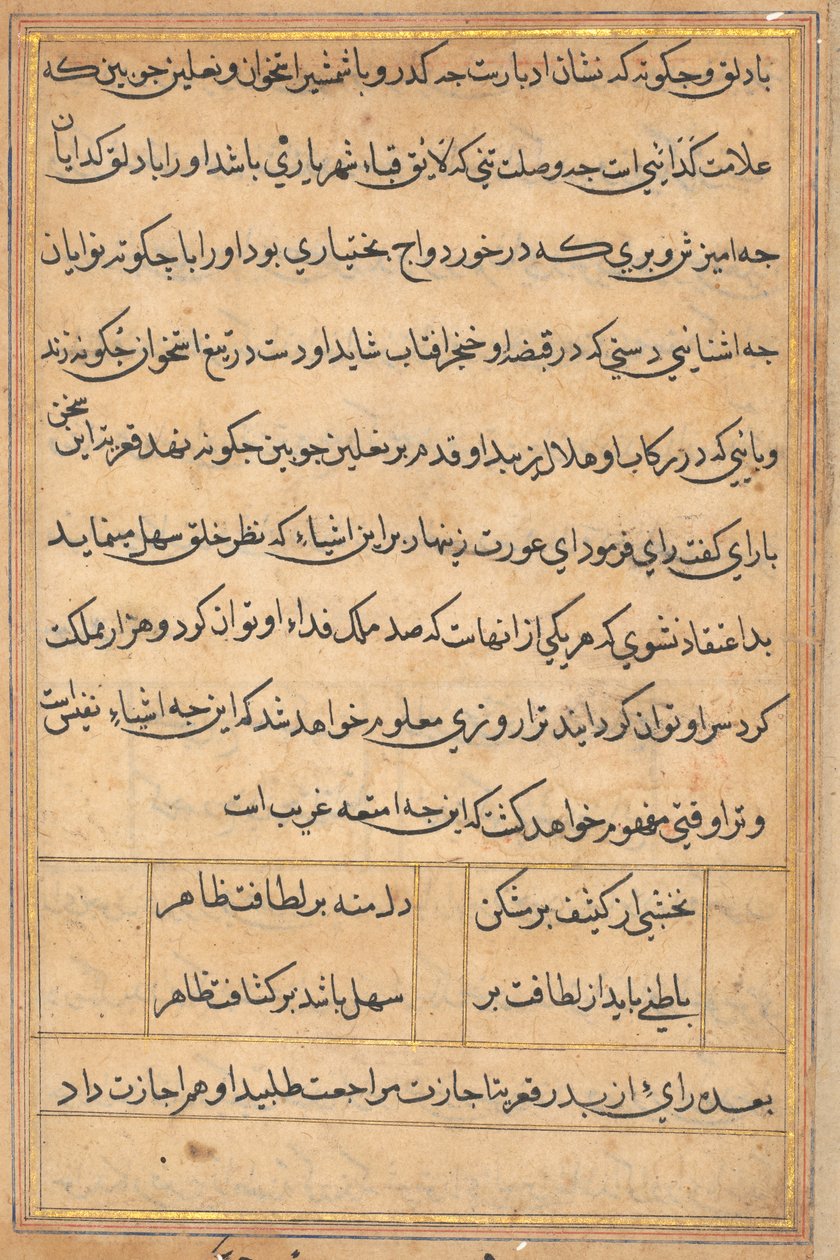 با دلق و چکونه که نشان ادبارست چه کدر و با شمشیر استخوان و نعلین چوبین که
علامت کدایی است چه وصلت تنی که لایق قباء شهریاری باشد او را با دلق کدایان
چه امیزش و بری که در خورد واج بختیاری بود او را با چکونه نوایان
چه اشنایی دستی که در قبضه او خنجر افتاب شاید او دست در تیغ استخوان چکونه زند
و پایی که در رکاب او هلال زیبد او قدم بر نعلین چوبین چکونه نهد این سخن
با رای کفت رای فرمود ای عورت زینهار برین اشیاء که نظر خلق سهل مینماید
بد اعتقاد نشوی که هر یکی از انهاست که صد ملک فداء او توان کرد و هزار مملکت
کرد سر او توان کردانید ترا روزی معلوم خواهد شد که این چه اشیاء نفیس است
و ترا وقتی مفهوم خواهد کشت که این چه امتعه غریب است
نخشبی از کثیف بر مشکن
دل منه بر لطافت ظاهر
باطنی باید از لطافت بر
سهل باشد بر کثافت ظاهر
بعده رای از پدر اجازت مراجعت طلبید او هم اجازت داد